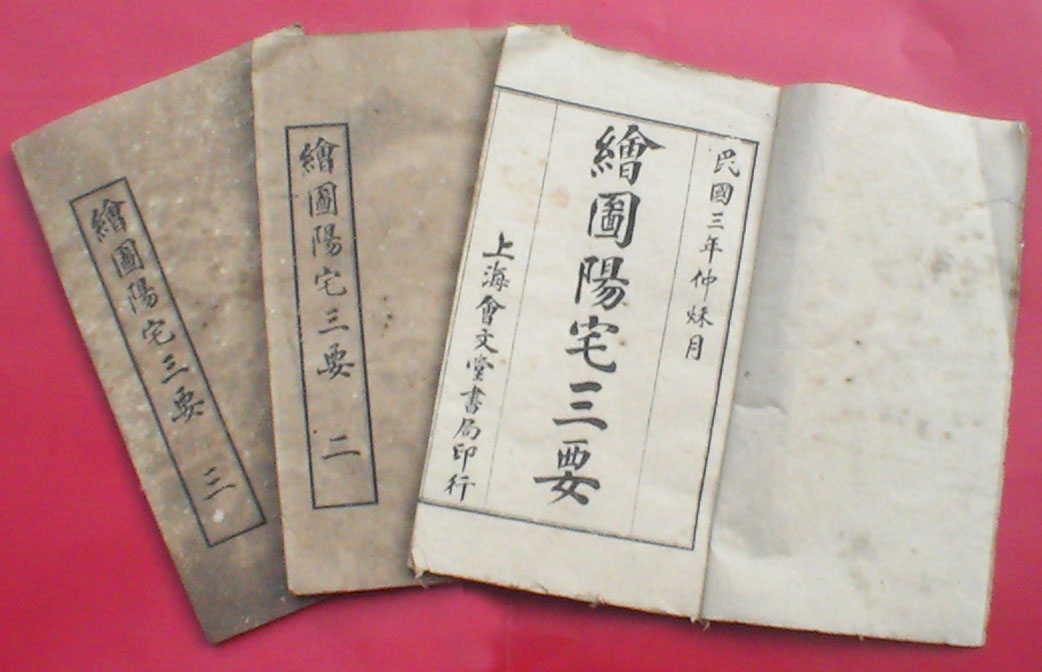 民國三年仲秌月
繪圖陽宅三要
上海會文堂書局印行
繪圖陽宅三要 二
繪圖陽宅三要 三